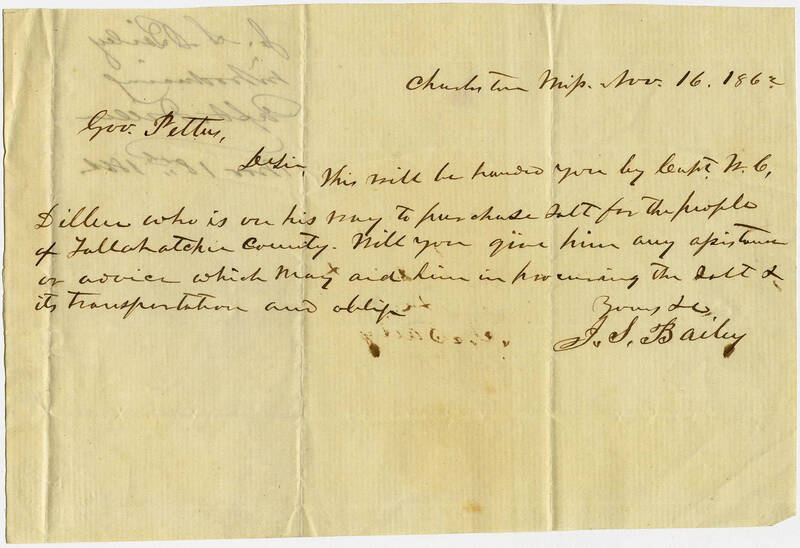 Charleston Miss. Nov. 16. 1862
Gov. Pettus,
Dr Sir, This will be handed you by Capt. W. C.
Dillen who is on his way to purchase Salt for the people
of Tallahatchie County. Will you give him any assistance
or advice which may aid him in procuring the Salt &
its transportation and oblige
Yours &c
J. S. Bailey